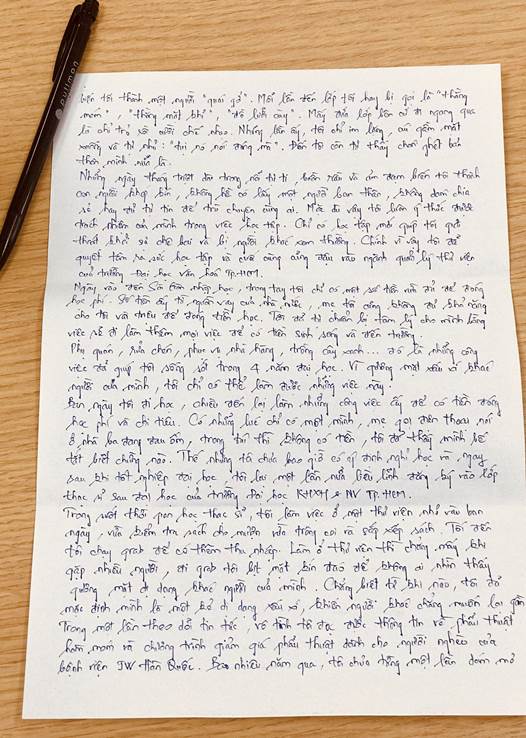 pullman
biến tôi thành một người "quái gở". Mỗi lần đến lớp tôi hay bị gọi là "thằng
móm", "thằng mặt khỉ", "đồ lưỡi cày". Mấy đứa lớp lớn cứ đi ngang qua
là chỉ trỏ rồi cười chế nhạo. Những lần ấy, tôi chỉ im lặng, cúi gầm mặt
xuống và tự nhủ: "tụi nó nói đúng mà". Đến tôi còn tự thấy chán ghét bản
thân mình nữa là.
Những ngày tháng triệt dài trong nỗi tự ti, buồn rầu và ảm đạm biến tôi thành
con người khép kín, không hề có lấy một người bạn thân, không dám chia
sẻ hay đủ tự tin để trò chuyện cùng ai. Mặc dù vậy tôi luôn ý thức được
trách nhiệm của mình trong việc học tập. Chỉ có học tập mới giúp tôi quá
thoát khỏi sự chê bai và bị người khác xem thường. Chính vì vậy tôi đã
quyết tâm ra sức học tập và cuối cùng cũng đậu vào ngành quản lý thư viện
của trường Đại học Văn hoá TP.HCM.
Ngày vào đến Sài Gòn nhập học, trong tay tôi chỉ có một số tiền vừa đủ để đóng
học phí. Số tiền ấy từ nguồn vay của nhà nước, mẹ tôi cũng không đủ khả năng
cho tôi vài triệu để đóng tiền học. Tôi đã tự chuẩn bị tâm lý cho mình bằng
việc sẽ đi làm thêm mọi việc để có tiền sinh sống và đến trường.
Phụ quán, rửa chén, phục vụ nhà hàng, trồng cây xanh... đó là những công
việc đã giúp tôi sống sót trong 4 năm đại học. Vì gương mặt xấu xí khác
người của mình, tôi chỉ có thể làm được những việc này.
Ban ngày tôi đi học, chiều đến lại làm những công việc ấy để có tiền đóng
học phí và chi tiêu. Có những lúc chỉ có một mình, mẹ gọi điện thoại nói
ở nhà ba đang đau ốm, trong túi thì không có tiền, tôi đã thấy mình bế
tắt biết chừng nào. Thế nhưng tôi chưa bao giờ có ý định nghỉ học và ngay
sau khi tốt nghiệp đại học, tôi lại một lần nữa liều lĩnh đăng ký vào lớp
thạc sĩ sau đại học của trường Đại học KHXH & NV TP.HCM.
Trong suốt thời gian học thạc sĩ, tôi làm việc ở một thư viện nhỏ vào ban
ngày, vừa kiểm tra sách cho mượn vừa trông coi và sắp xếp sách. Tối đến
tôi chạy grab để có thêm thu nhập. Làm ở thư viện thì chẳng mấy khi
gặp nhiều người, đi grab tôi bịt mặt kín đáo để không ai nhìn thấy
gương mặt dị dạng khác người của mình. Chẳng biết từ khi nào, tôi đã
mặc định mình là một kẻ dị dạng xấu xí, khiến người khác chẳng muốn lại gần
Trong một lần theo dõi tin tức, vô tình tôi đọc được thông tin về phẫu thuật
hàm móm và chương trình giảm giá phẫu thuật dành cho người nghèo của
bệnh viện JW Hàn Quốc. Bao nhiêu năm qua, tôi chưa từng một lần dám mơ